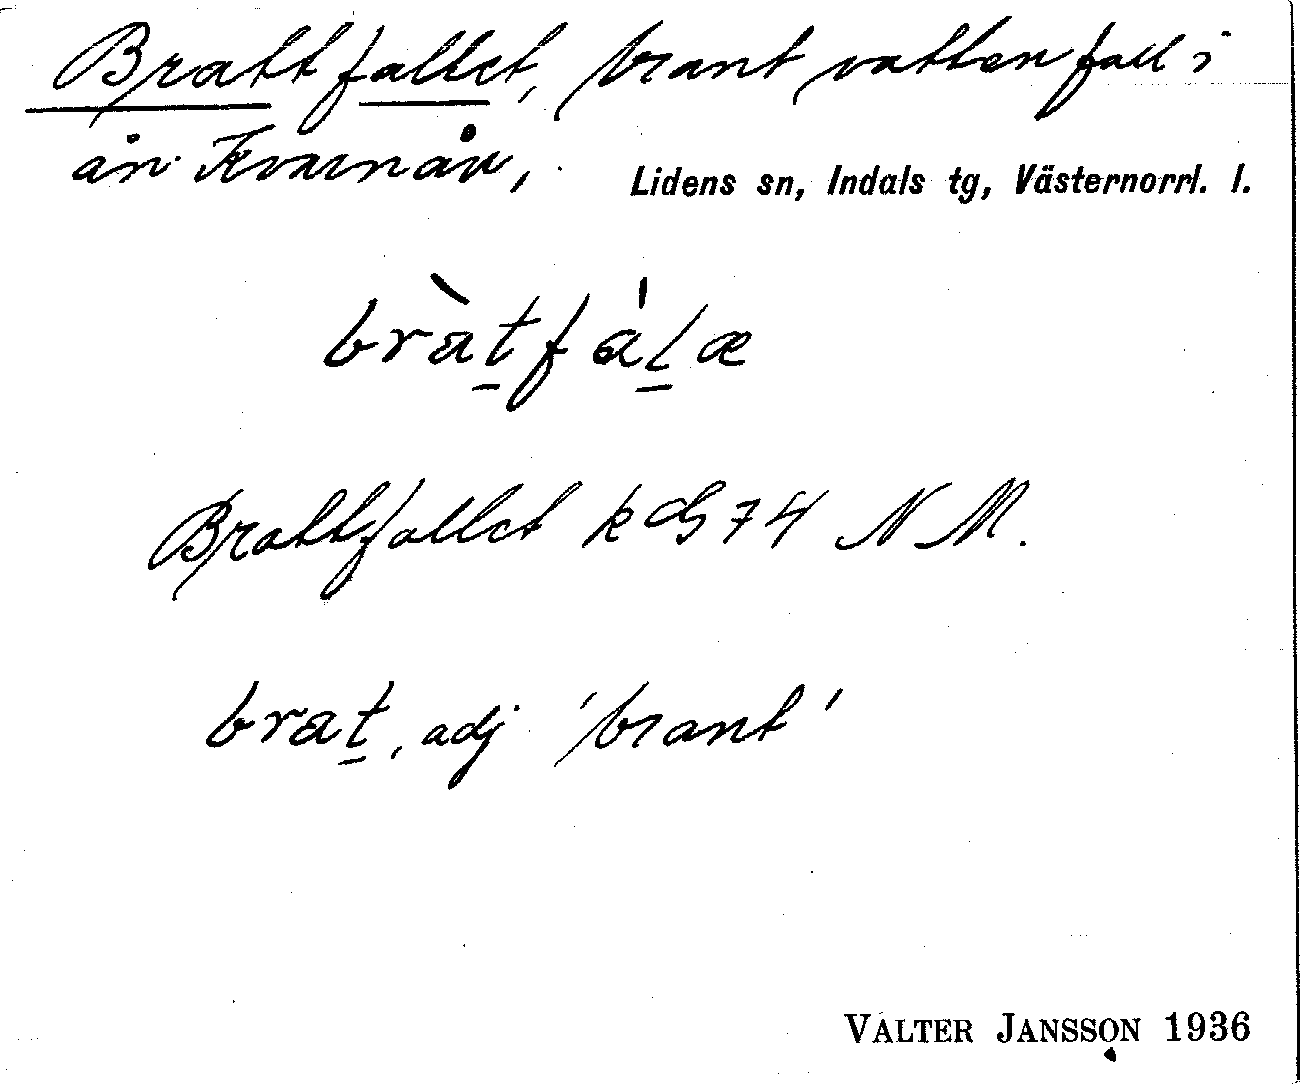 Brattfallet, brant vattenfall i
ån Kvarnån,
Lidens sn, Indals tg, Västernorrl. l.
bràtfálæ
Brattfallet k G74 NM.
brat, adj 'brant'
VALTER JANSSON 1936